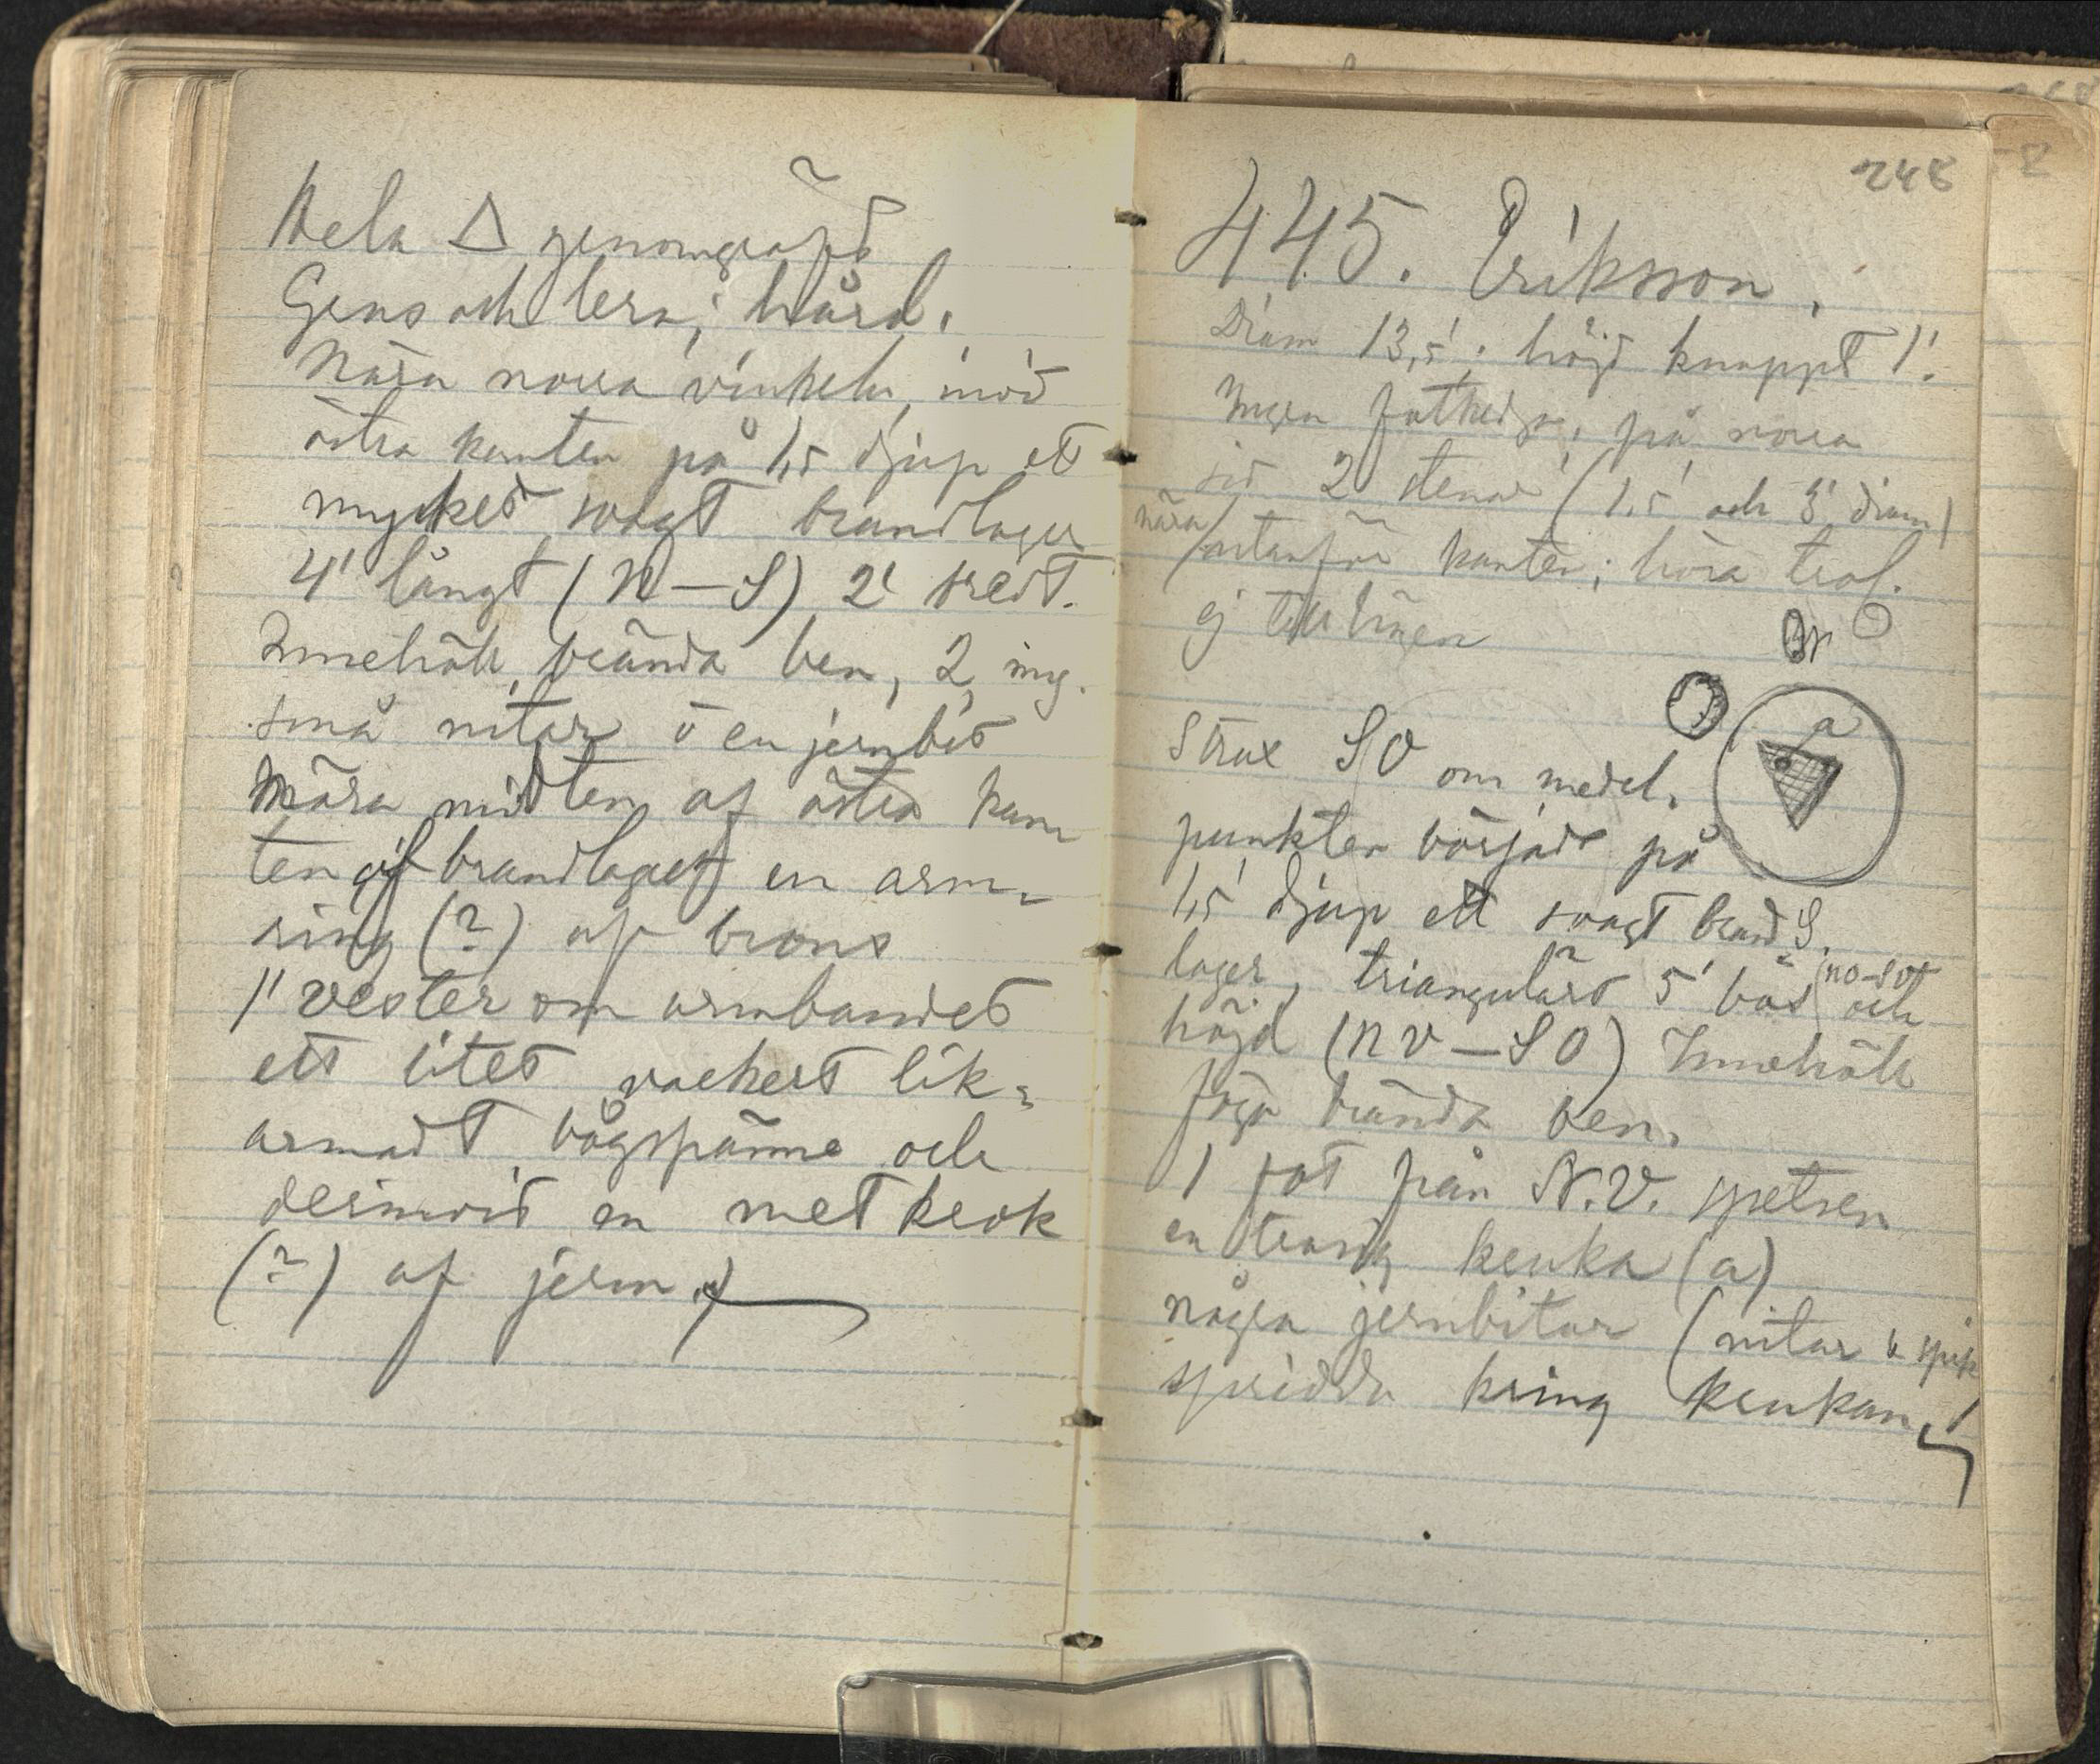 Hela △ genomgräfd
Grus och lera; hård.
Nära norra vinkeln, mot
östra kanten på 1,5' djup ett
mycket svagt brandlager
4' långt (N—S) 2' bredt.
Innehöll brända ben, 2 
små nitar o en jernbit
Nära midten af östra kan
ten af brandlagret en arm-
ring (?) af brons
1' vester om armbandet
ett litet vackert lik-
armadt bågspänne och
derinvid en metkrok
(?) af jern.
248
445. Eriksson.
Diam 13,5'; höjd knappt 1'.
Ingen fotkedja; på norra
sid 2 stenar (1,5' och 3' diam)
nära
utanför kanten; höra trol.
ej till högen
N
a
Strax SO om medel-
punkten började på
1,5' djup ett svagt brand
S.
lager, triangulärt 5' bas (NO–SV) och
höjd (NV—SO) Innehöll
föga brända ben.
1 fot från N.V. spetsen
en trasig kruka (a)
några jernbitar (nitar & spik
spridda kring krukan.)